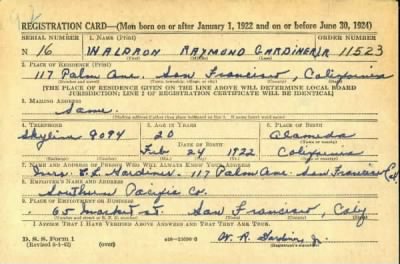 REGISTRATION CARD—(Men born on or after January 1, 1922 and on or before June 30, 1924)
SERIAL NUMBER 1. NAME (Print) ORDER NUMBER
N 16 WALDRON RAYMOND GARDINER JR 11523
2. PLACE OF RESIDENCE (Print)
117 Palm Ave. San Francisco, California
[THE PLACE OF RESIDENCE GIVEN ON THE LINE ABOVE WILL DETERMINE LOCAL BOARD
JURISDICTION; LINE 2 OF REGISTRATION CERTIFICATE WILL BE IDENTICAL]
3. MAILING ADDRESS
Same.
4. TELEPHONE 5. AGE IN YEARS 6. PLACE OF BIRTH
Skyline 9094 20 Alameda
DATE OF BIRTH
Feb 24 1922 California
7. NAME AND ADDRESS OF PERSON WHO WILL ALWAYS KNOW YOUR ADDRESS
Mrs. Gardiner. 117 Palm Ave. San Francisco Cal
8. EMPLOYER'S NAME AND ADDRESS
Southern Pacific Co.
9. PLACE OF EMPLOYMENT OR BUSINESS
65 Market St. San Francisco, Calif
I AFFIRM THAT I HAVE VERIFIED ABOVE ANSWERS AND THAT THEY ARE TRUE.
D. S. S. Form 1
(over) W. R. Gardiner Jr.